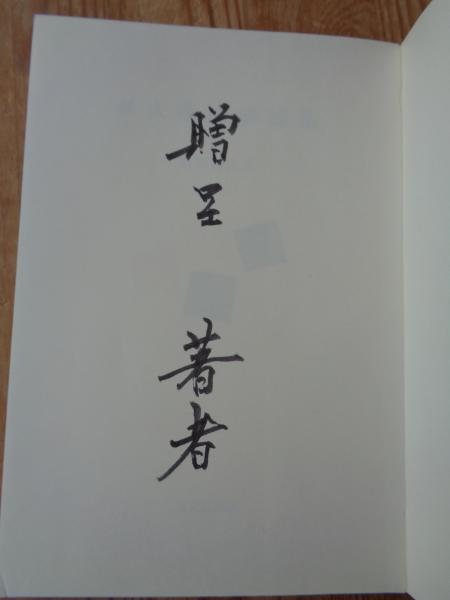 贈呈 著者